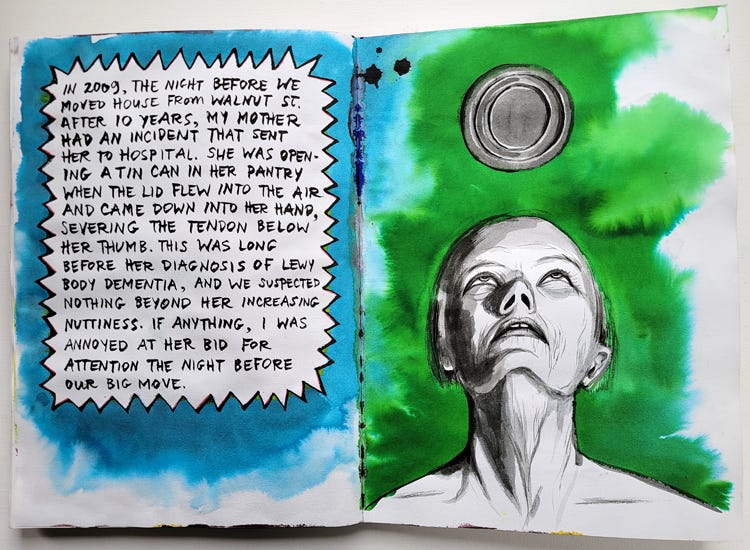 IN 2009, THE NIGHT BEFORE WE
MOVED HOUSE FROM WALNUT ST.
AFTER 10 YEARS, MY MOTHER
HAD AN INCIDENT THAT SENT
HER TO HOSPITAL. SHE WAS OPEN-
ING A TIN CAN IN HER PANTRY
WHEN THE LID FLEW INTO THE AIR
AND CAME DOWN INTO HER HAND,
SEVERING THE TENDON BELOW
HER THUMB. THIS WAS LONG
BEFORE HER DIAGNOSIS OF LEWY
BODY DEMENTIA, AND WE SUSPECTED
NOTHING BEYOND HER INCREASING
NUTTINESS. IF ANYTHING, I WAS
ANNOYED AT HER BID FOR
ATTENTION THE NIGHT BEFORE
OUR BIG MOVE.